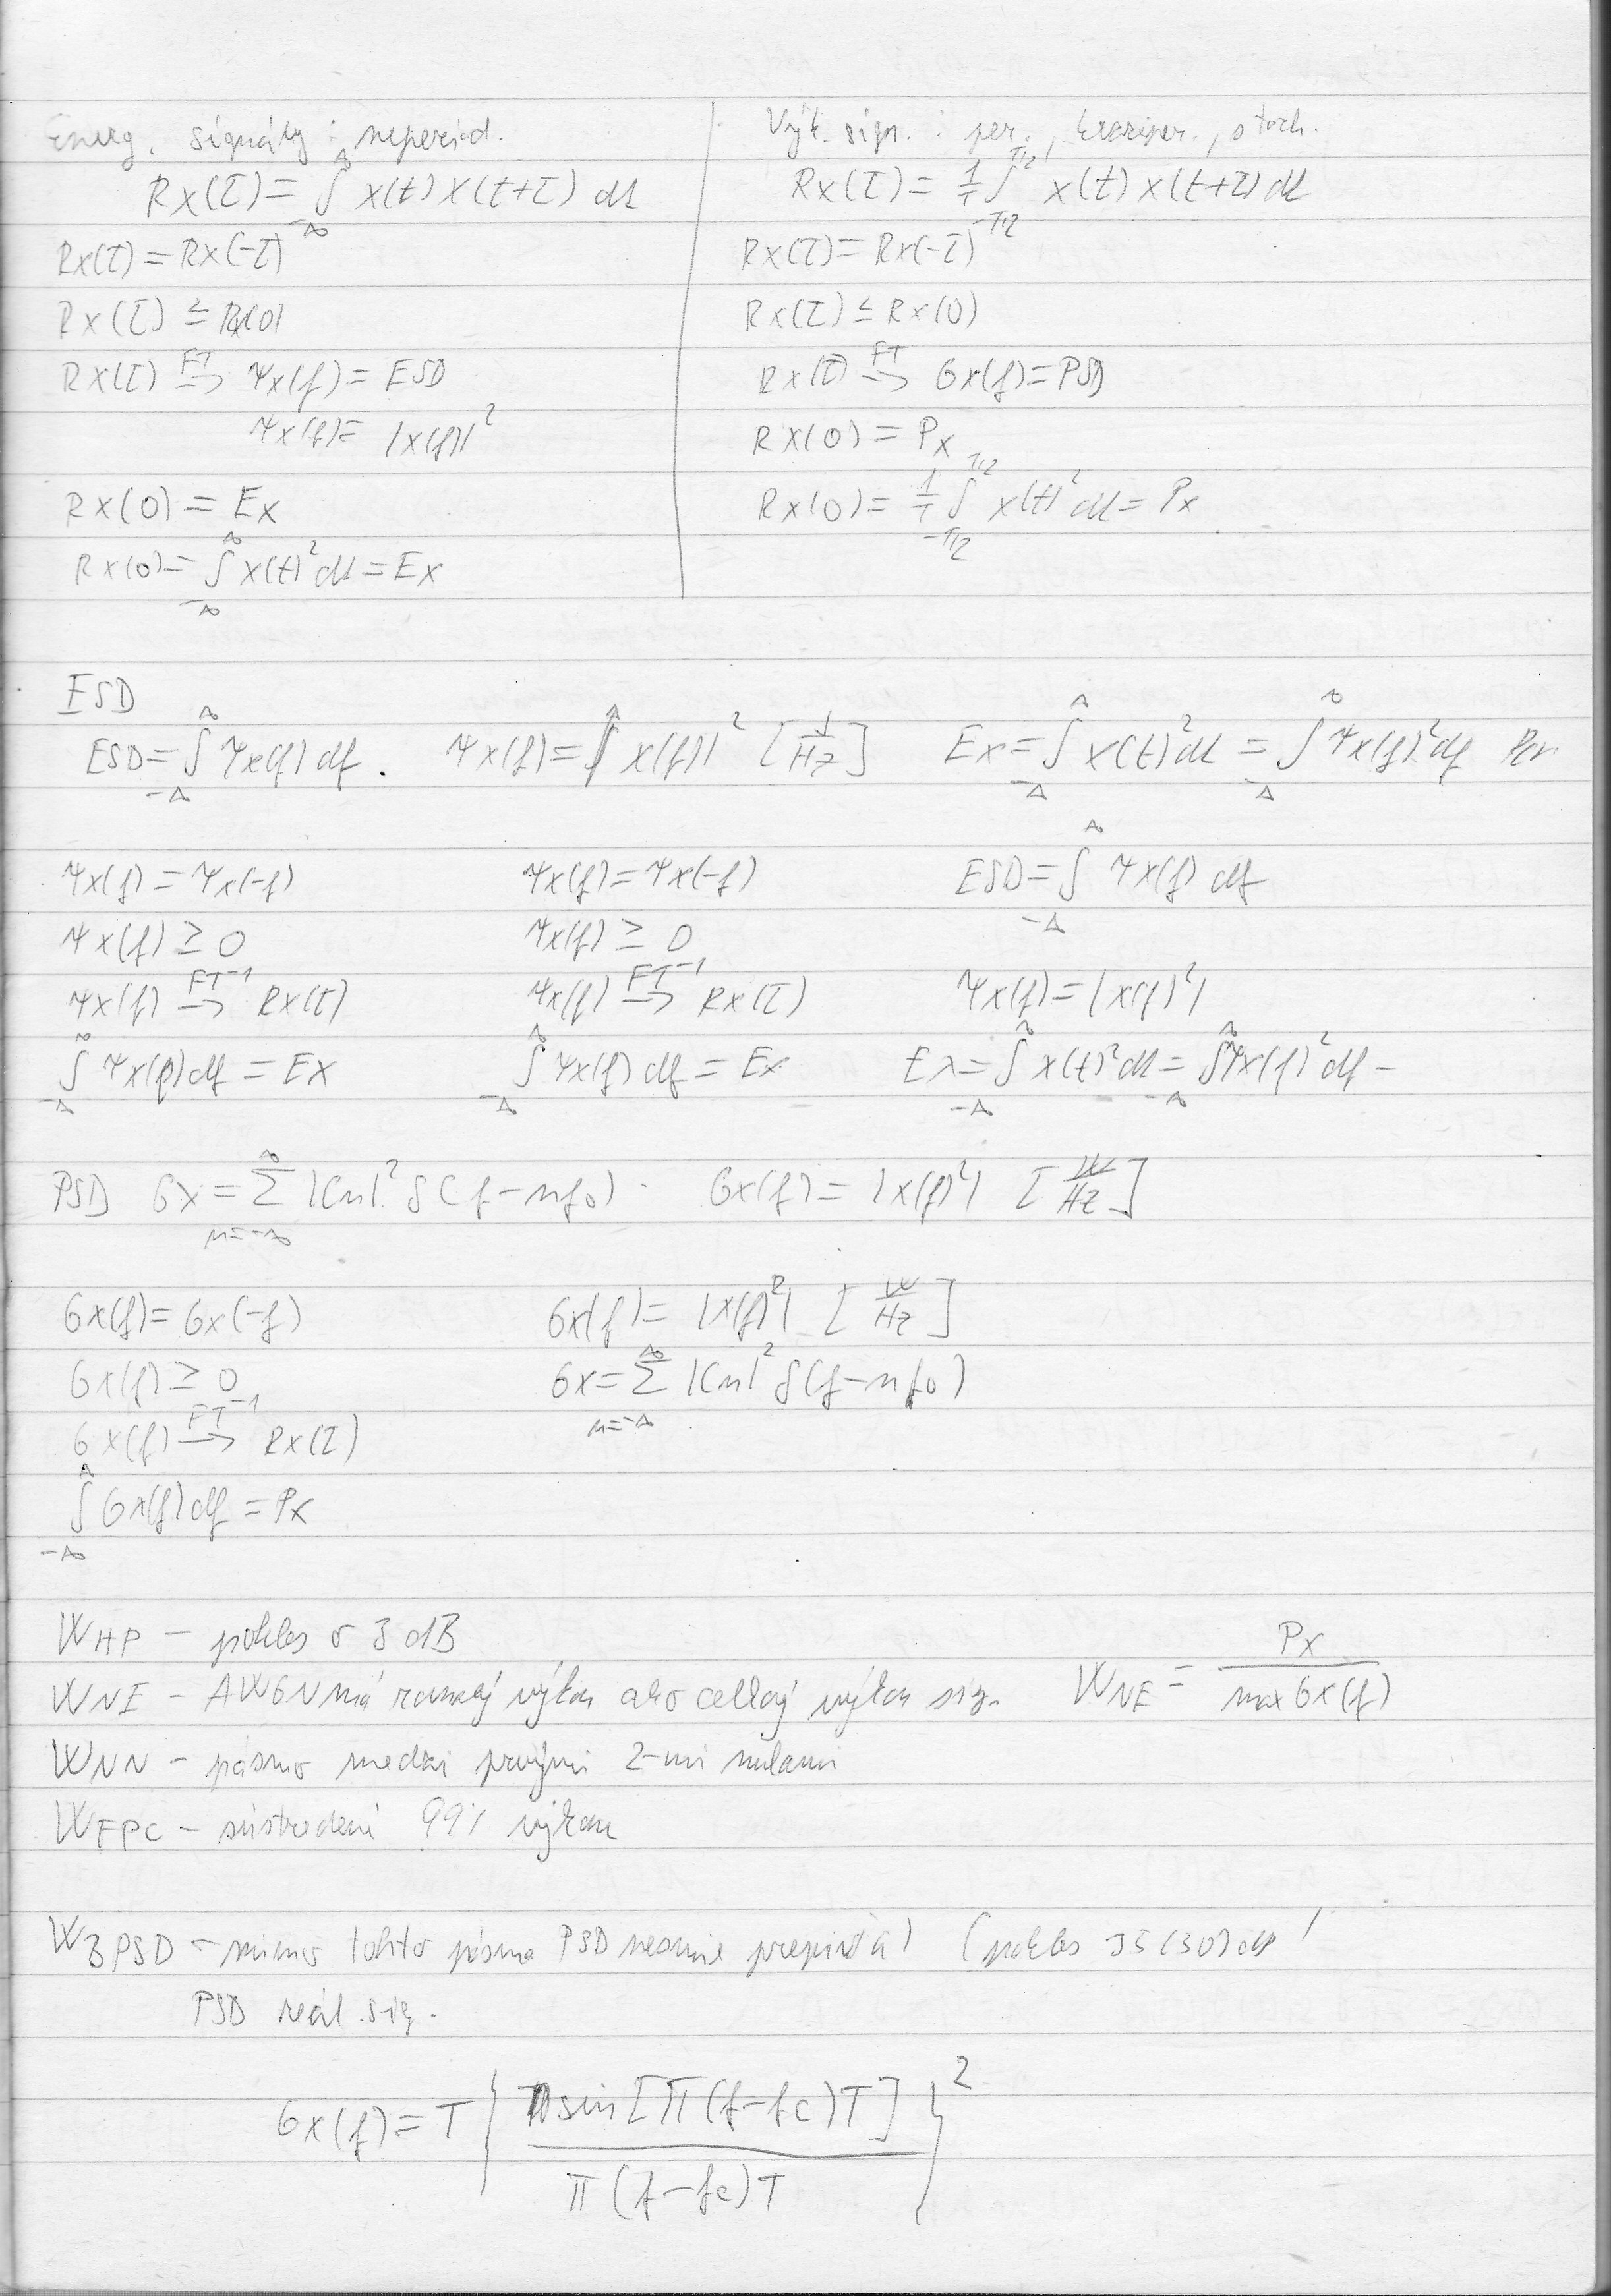 Energ. signály : neperiod.
Rx(τ) = ∫_{-∞}^{∞} x(t) x(t+τ) dt
Rx(τ) = Rx(-τ)
Rx(τ) ≤ Rx(0)
Rx(τ) →^{FT} Ψx(f) = ESD
Ψx(f) = |x(f)|²
Rx(0) = Ex
Rx(0) = ∫_{-∞}^{∞} x(t)² dt = Ex
Výk. sign. : per., kvaziper., stoch.
Rx(τ) = 1/T ∫_{-T/2}^{T/2} x(t) x(t+τ) dt
Rx(τ) = Rx(-τ)
Rx(τ) ≤ Rx(0)
Rx(τ) →^{FT} Gx(f) = PSD
Rx(0) = Px
Rx(0) = 1/T ∫_{-T/2}^{T/2} x(t)² dt = Px
ESD
ESD = ∫_{-∞}^{∞} Ψx(f) df . Ψx(f) = |x(f)|² [J/Hz] Ex = ∫_{-∞}^{∞} x(t)² dt = ∫_{-∞}^{∞} Ψx(f)² df
Ψx(f) = Ψx(-f) Ψx(f) = Ψx(-f) ESD = ∫_{-∞}^{∞} Ψx(f) df
Ψx(f) ≥ 0 Ψx(f) ≥ 0
Ψx(f) →^{FT⁻¹} Rx(τ) Ψx(f) →^{FT⁻¹} Rx(τ) Ψx(f) = |x(f)²|
∫_{-∞}^{∞} Ψx(f) df = Ex ∫_{-∞}^{∞} Ψx(f) df = Ex Ex = ∫_{-∞}^{∞} x(t)² dt = ∫_{-∞}^{∞} Ψx(f)² df -
PSD Gx = Σ_{n=-∞}^{∞} |Cn|² δ(f-nf₀) . Gx(f) = |x(f)²| [W/Hz]
Gx(f) = Gx(-f) Gx(f) = |x(f)²| [W/Hz]
Gx(f) ≥ 0 Gx = Σ_{n=-∞}^{∞} |Cn|² δ(f-nf₀)
Gx(f) →^{FT⁻¹} Rx(τ)
∫_{-∞}^{∞} Gx(f) df = Px
W_HP - pokles o 3 dB
W_NE - AWGN má rovnaký výkon ako celkový výkon sig. W_NE = Px / max Gx(f)
W_NN - pásmo medzi prvými 2-mi nulami
W_FPC - sústredení 99% výkonu
W_BPSD - mimo tohto pásma PSD nesmie (pokles 35 (50) dB)
PSD reál. sig.
Gx(f) = T { sin[π(f-fc)T] / π(f-fc)T }²